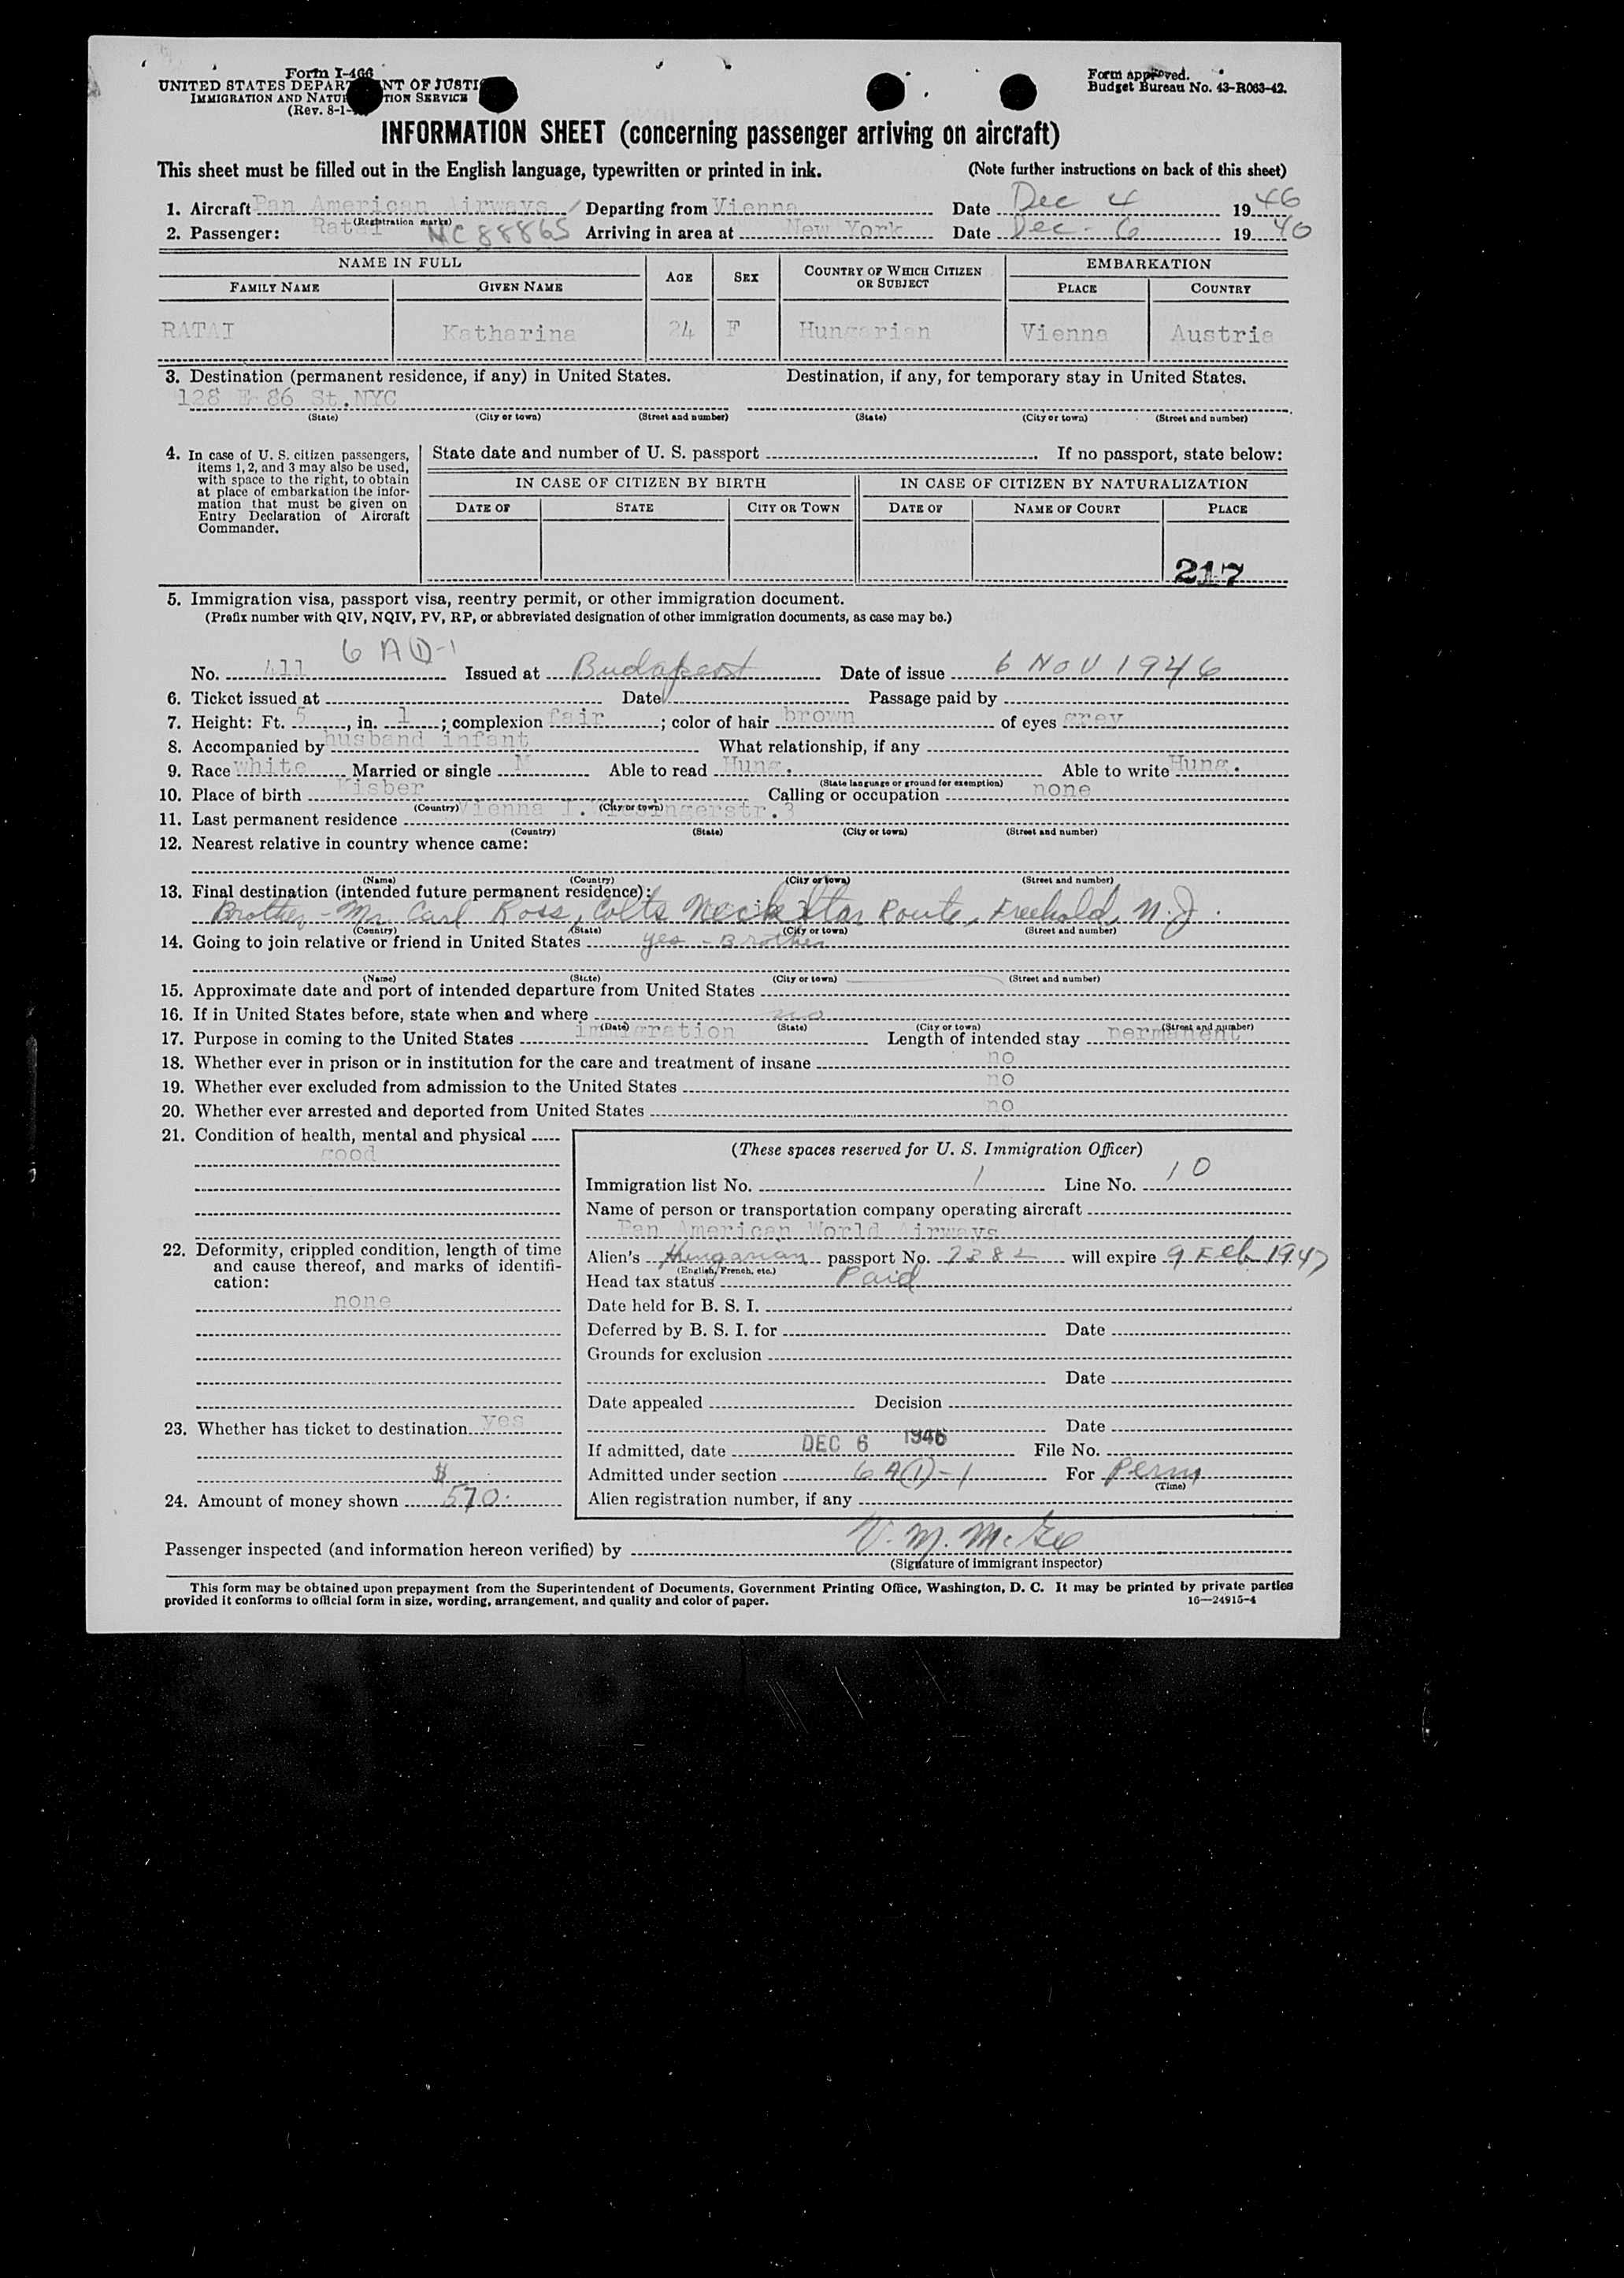 Form I-466
UNITED STATES DEPARTMENT OF JUSTICE
IMMIGRATION AND NATURALIZATION SERVICE
(Rev. 8-1-
Form approved.
Budget Bureau No. 43-R063-42.
INFORMATION SHEET (concerning passenger arriving on aircraft)
This sheet must be filled out in the English language, typewritten or printed in ink. (Note further instructions on back of this sheet)
1. Aircraft Pan American Airways Departing from Vienna Date Dec 4 1946
(Registration marks)
2. Passenger: Ratai NC 88865 Arriving in area at New York Date Dec - 6 19 46
NAME IN FULL AGE SEX COUNTRY OF WHICH CITIZEN OR SUBJECT EMBARKATION
FAMILY NAME GIVEN NAME PLACE COUNTRY
RATAI Katharina 24 F Hungarian Vienna Austria
3. Destination (permanent residence, if any) in United States. Destination, if any, for temporary stay in United States.
128 E 86 St.NYC
(State) (City or town) (Street and number) (State) (City or town) (Street and number)
4. In case of U. S. citizen passengers, items 1, 2, and 3 may also be used, with space to the right, to obtain at place of embarkation the information that must be given on Entry Declaration of Aircraft Commander.
State date and number of U. S. passport If no passport, state below:
IN CASE OF CITIZEN BY BIRTH IN CASE OF CITIZEN BY NATURALIZATION
DATE OF STATE CITY OR TOWN DATE OF NAME OF COURT PLACE
217
5. Immigration visa, passport visa, reentry permit, or other immigration document.
(Prefix number with QIV, NQIV, PV, RP, or abbreviated designation of other immigration documents, as case may be.)
6 A(1)-1
No. 411 Issued at Budapest Date of issue 6 NOV 1946
6. Ticket issued at Date Passage paid by
7. Height: Ft. 5, in. 1; complexion fair; color of hair brown of eyes grey
8. Accompanied by husband infant What relationship, if any
9. Race white Married or single M Able to read Hung. Able to write Hung.
(State language or ground for exemption)
10. Place of birth Kisber Calling or occupation none
(Country) (City or town)
11. Last permanent residence Vienna I. Wiesingerstr.3
(Country) (State) (City or town) (Street and number)
12. Nearest relative in country whence came:
(Name) (Country) (City or town) (Street and number)
13. Final destination (intended future permanent residence):
Brother - Mr. Carl Ross, Colts Neck Star Route, Freehold, N.J.
(Country) (State) (City or town) (Street and number)
14. Going to join relative or friend in United States yes - Brother
(Name) (State) (City or town) (Street and number)
15. Approximate date and port of intended departure from United States
16. If in United States before, state when and where no
(Date) (State) (City or town) (Street and number)
17. Purpose in coming to the United States immigration Length of intended stay permanent
18. Whether ever in prison or in institution for the care and treatment of insane no
19. Whether ever excluded from admission to the United States no
20. Whether ever arrested and deported from United States no
21. Condition of health, mental and physical
good
22. Deformity, crippled condition, length of time and cause thereof, and marks of identification:
none
23. Whether has ticket to destination yes
$
24. Amount of money shown 570.
(These spaces reserved for U. S. Immigration Officer)
Immigration list No. 1 Line No. 10
Name of person or transportation company operating aircraft
Pan American World Airways
Alien's Hungarian passport No. 2282 will expire 9 Feb 1947
(English, French, etc.)
Head tax status Paid
Date held for B. S. I.
Deferred by B. S. I. for Date
Grounds for exclusion
Date
Date appealed Decision
Date
If admitted, date DEC 6 1946 File No.
Admitted under section 6 A(1)-1 For Perm
(Time)
Alien registration number, if any
Passenger inspected (and information hereon verified) by V. M. McGee
(Signature of immigrant inspector)
This form may be obtained upon prepayment from the Superintendent of Documents, Government Printing Office, Washington, D. C. It may be printed by private parties
provided it conforms to official form in size, wording, arrangement, and quality and color of paper. 16—24915-4